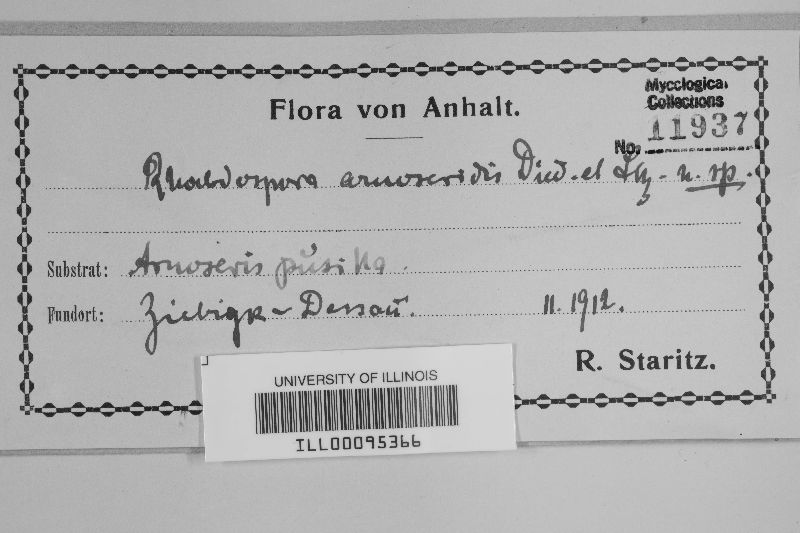 Mycological
Collections
No. 11937
Flora von Anhalt.
Rhabdospora arnoseridis Died. et Stz. n. sp.
Substrat: Arnoseris pusilla.
Fundort: Ziebigk - Dessau. 11. 1912.
R. Staritz.
UNIVERSITY OF ILLINOIS
ILL00095366